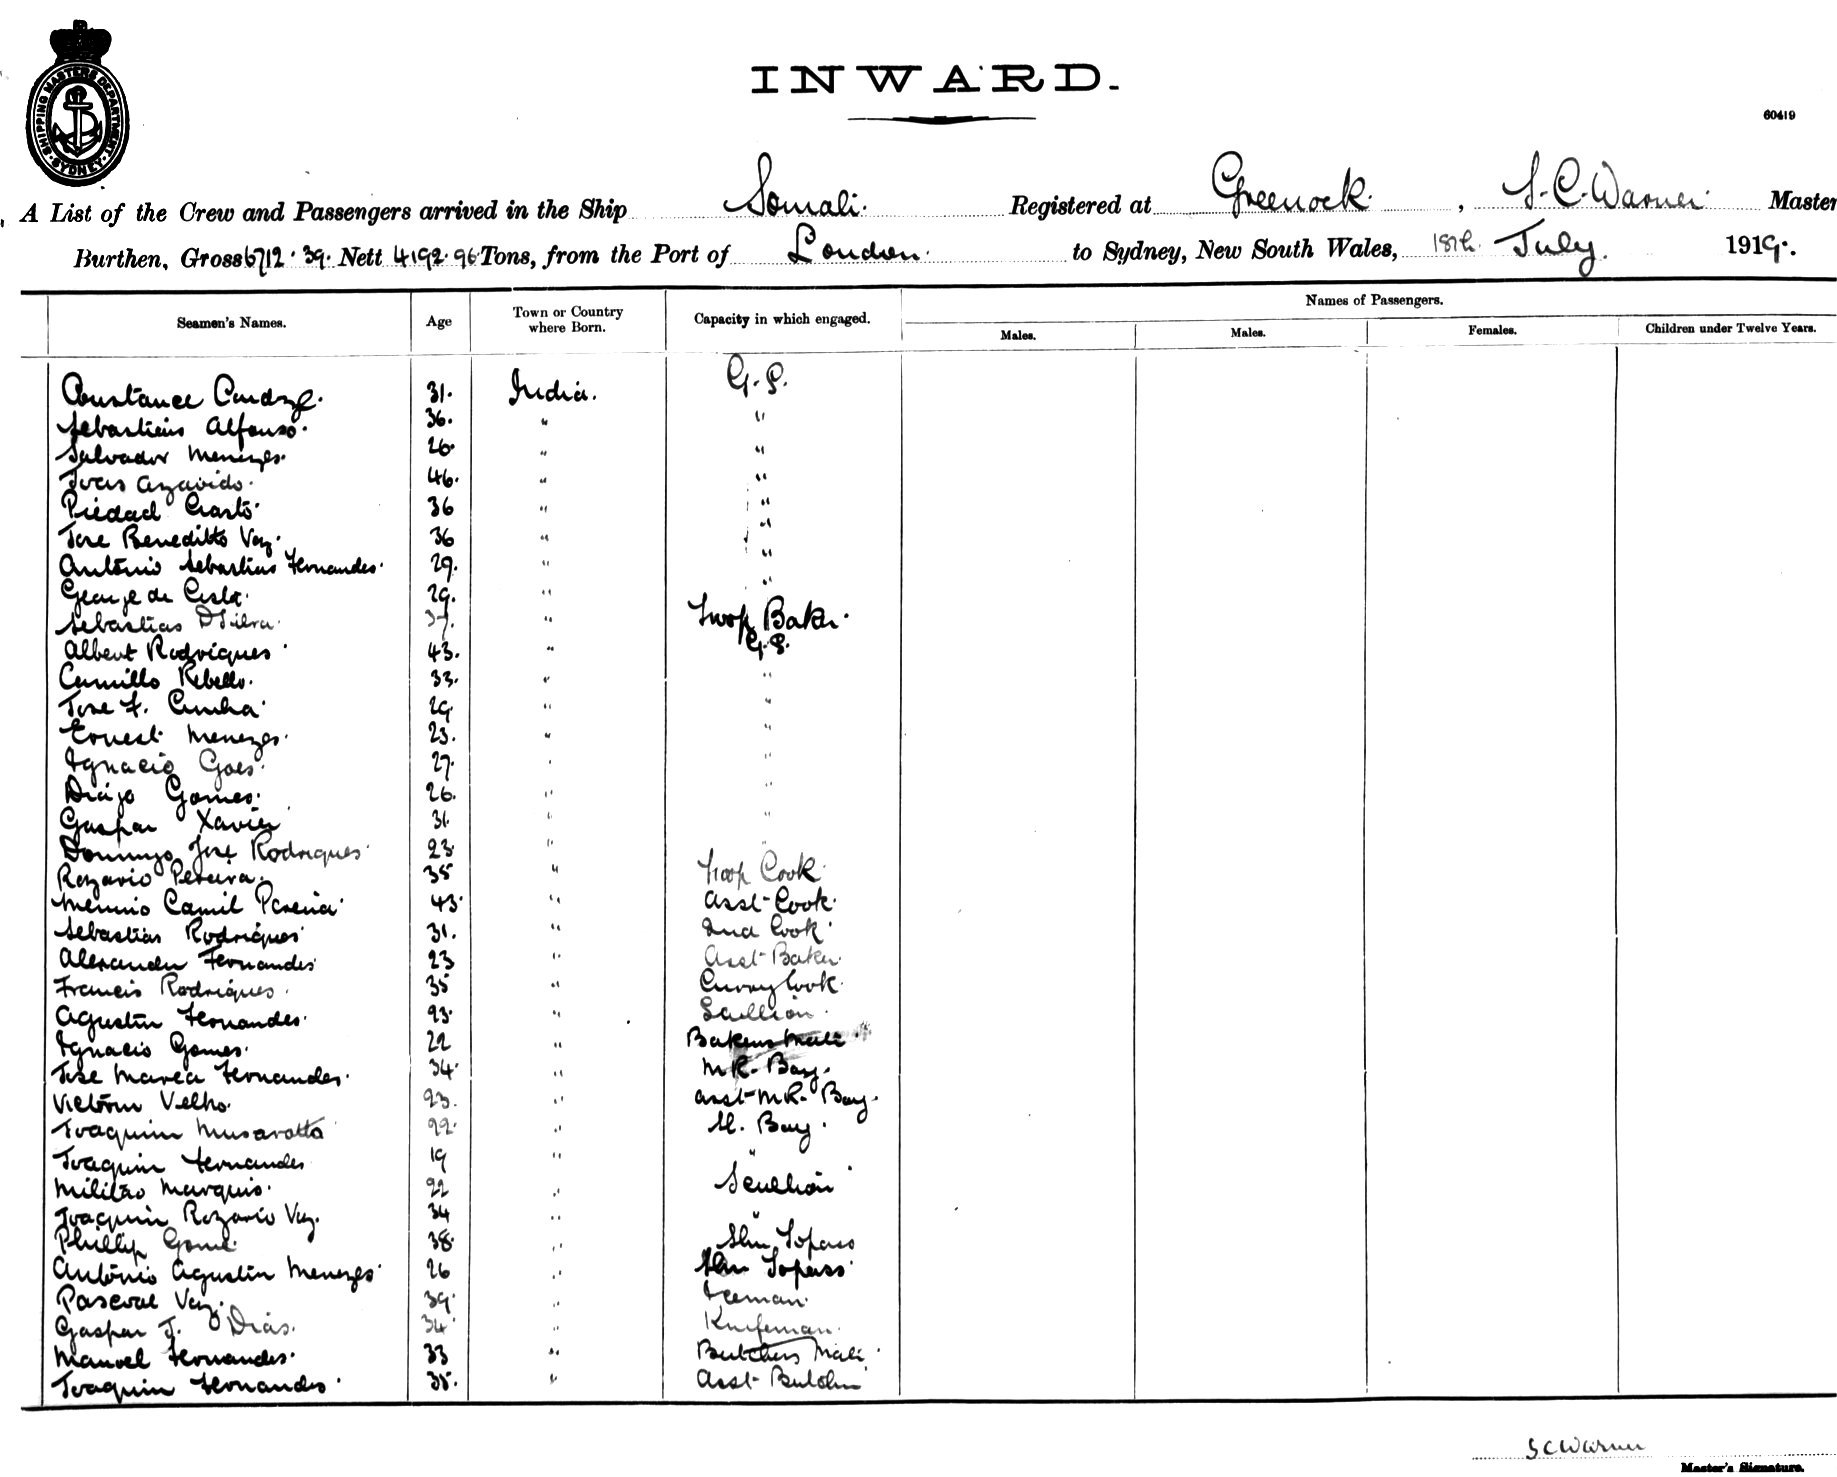 SHIPPING MASTERS DEPARTMENT
SYDNEY
INWARD.
60419
A List of the Crew and Passengers arrived in the Ship Somali. Registered at Greenock. , S. C. Warner Master
Burthen, Gross 6712.39. Nett 4192.96 Tons, from the Port of London. to Sydney, New South Wales, 18th July 1919.
Names of Passengers.
Seamen's Names. Age Town or Country where Born. Capacity in which engaged. Males. Males. Females. Children under Twelve Years.
Constance 31. India. G.S.
Alfonso. 36. " "
Salvador Menezes. 26. " "
46. " "
Piedad 36 " "
Jose Beneditto Vaz. 36 " "
Antonio Sebastiao Fernandes. 29. " "
George de 29. " "
Sebastiao DSilva. 37. " Troop Baker.
Albert Rodrigues 43. " G.S.
Camillo Rebello. 33. " "
Jose F. Cunha 29 " "
Ernest Menezes. 23. " "
Ignacio Goes. 27. " "
Gomes. 26. " "
Gaspar Xavier 31. " "
Domingo Jose Rodrigues 23 " "
Rozario Pereira. 35 " Troop Cook
Camil Pereira 43 " Asst Cook
Sebastiao Rodrigues 31. " 2nd Cook
Alexander Fernandes 23 " Asst Baker
Francis Rodrigues. 35 " Curry Cook
Agustin Fernandes. 23. " Scullion.
Ignacio Gomes. 22 " Bakers Mate
Jose Maria Fernandes. 34. " M.R. Boy.
Velho. 23. " Asst M.R. Boy.
Joaquim 22. " Boy.
Joaquim Fernandes 19 " "
Militao Marquis. 22 " Scullion
Joaquim Rozario Vaz. 34 " "
Phillip 38. " Topass
Antonio Agustin Menezes 26 " Topass
Pascoal Vaz. 39. " Iceman.
Gaspar J. Dias. 34 " Knifeman.
Manoel Fernandes. 33 " Butchers Mate
Joaquim Fernandes 35. " Asst Butcher
S C Warner
Master's Signature.